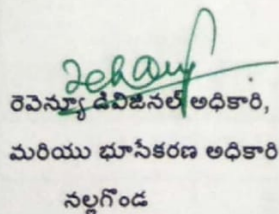 రెవెన్యూ డివిజినల్ అధికారి,
మరియు భూసేకరణ అధికారి
నల్లగొండ